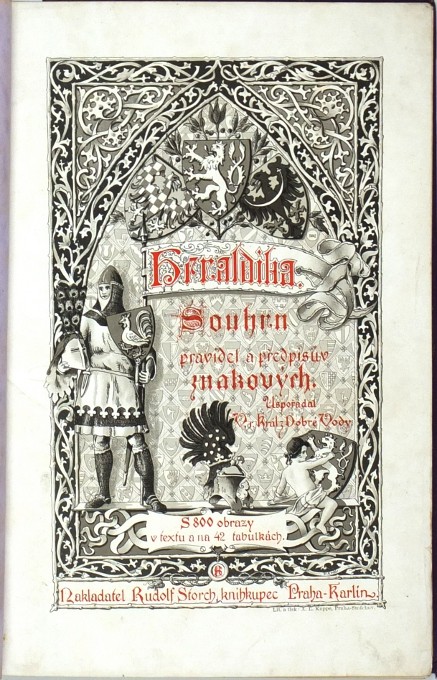 Heraldika.
Souhrn
pravidel a předpisův
znakových.
Uspořádal
Vojt. Král z Dobré Vody
S 800 obrazy
v textu a na 42 tabulkách.
Nakladatel Rudolf Storch, knihkupec Praha-Karlín.
Lit. a tisk